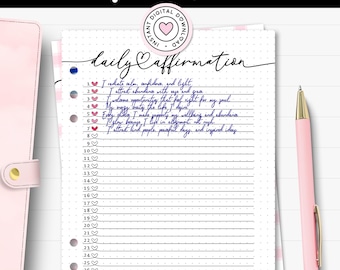 INSTANT DIGITAL DOWNLOAD
daily affirmation
1 I inhale calm, confidence, and light.
2 I attract abundance with ease and grace.
3 I welcome opportunities that feel right for my soul.
4 My energy
5 Every place I make supports my wellbeing and abundance.
6 I live in alignment
7 I attract kind people, peaceful days, and inspired ideas.
8
9
10
11
12
13
14
15
16
17
18
19
20
21
22
23
24
25
26
27
28
29
30
31